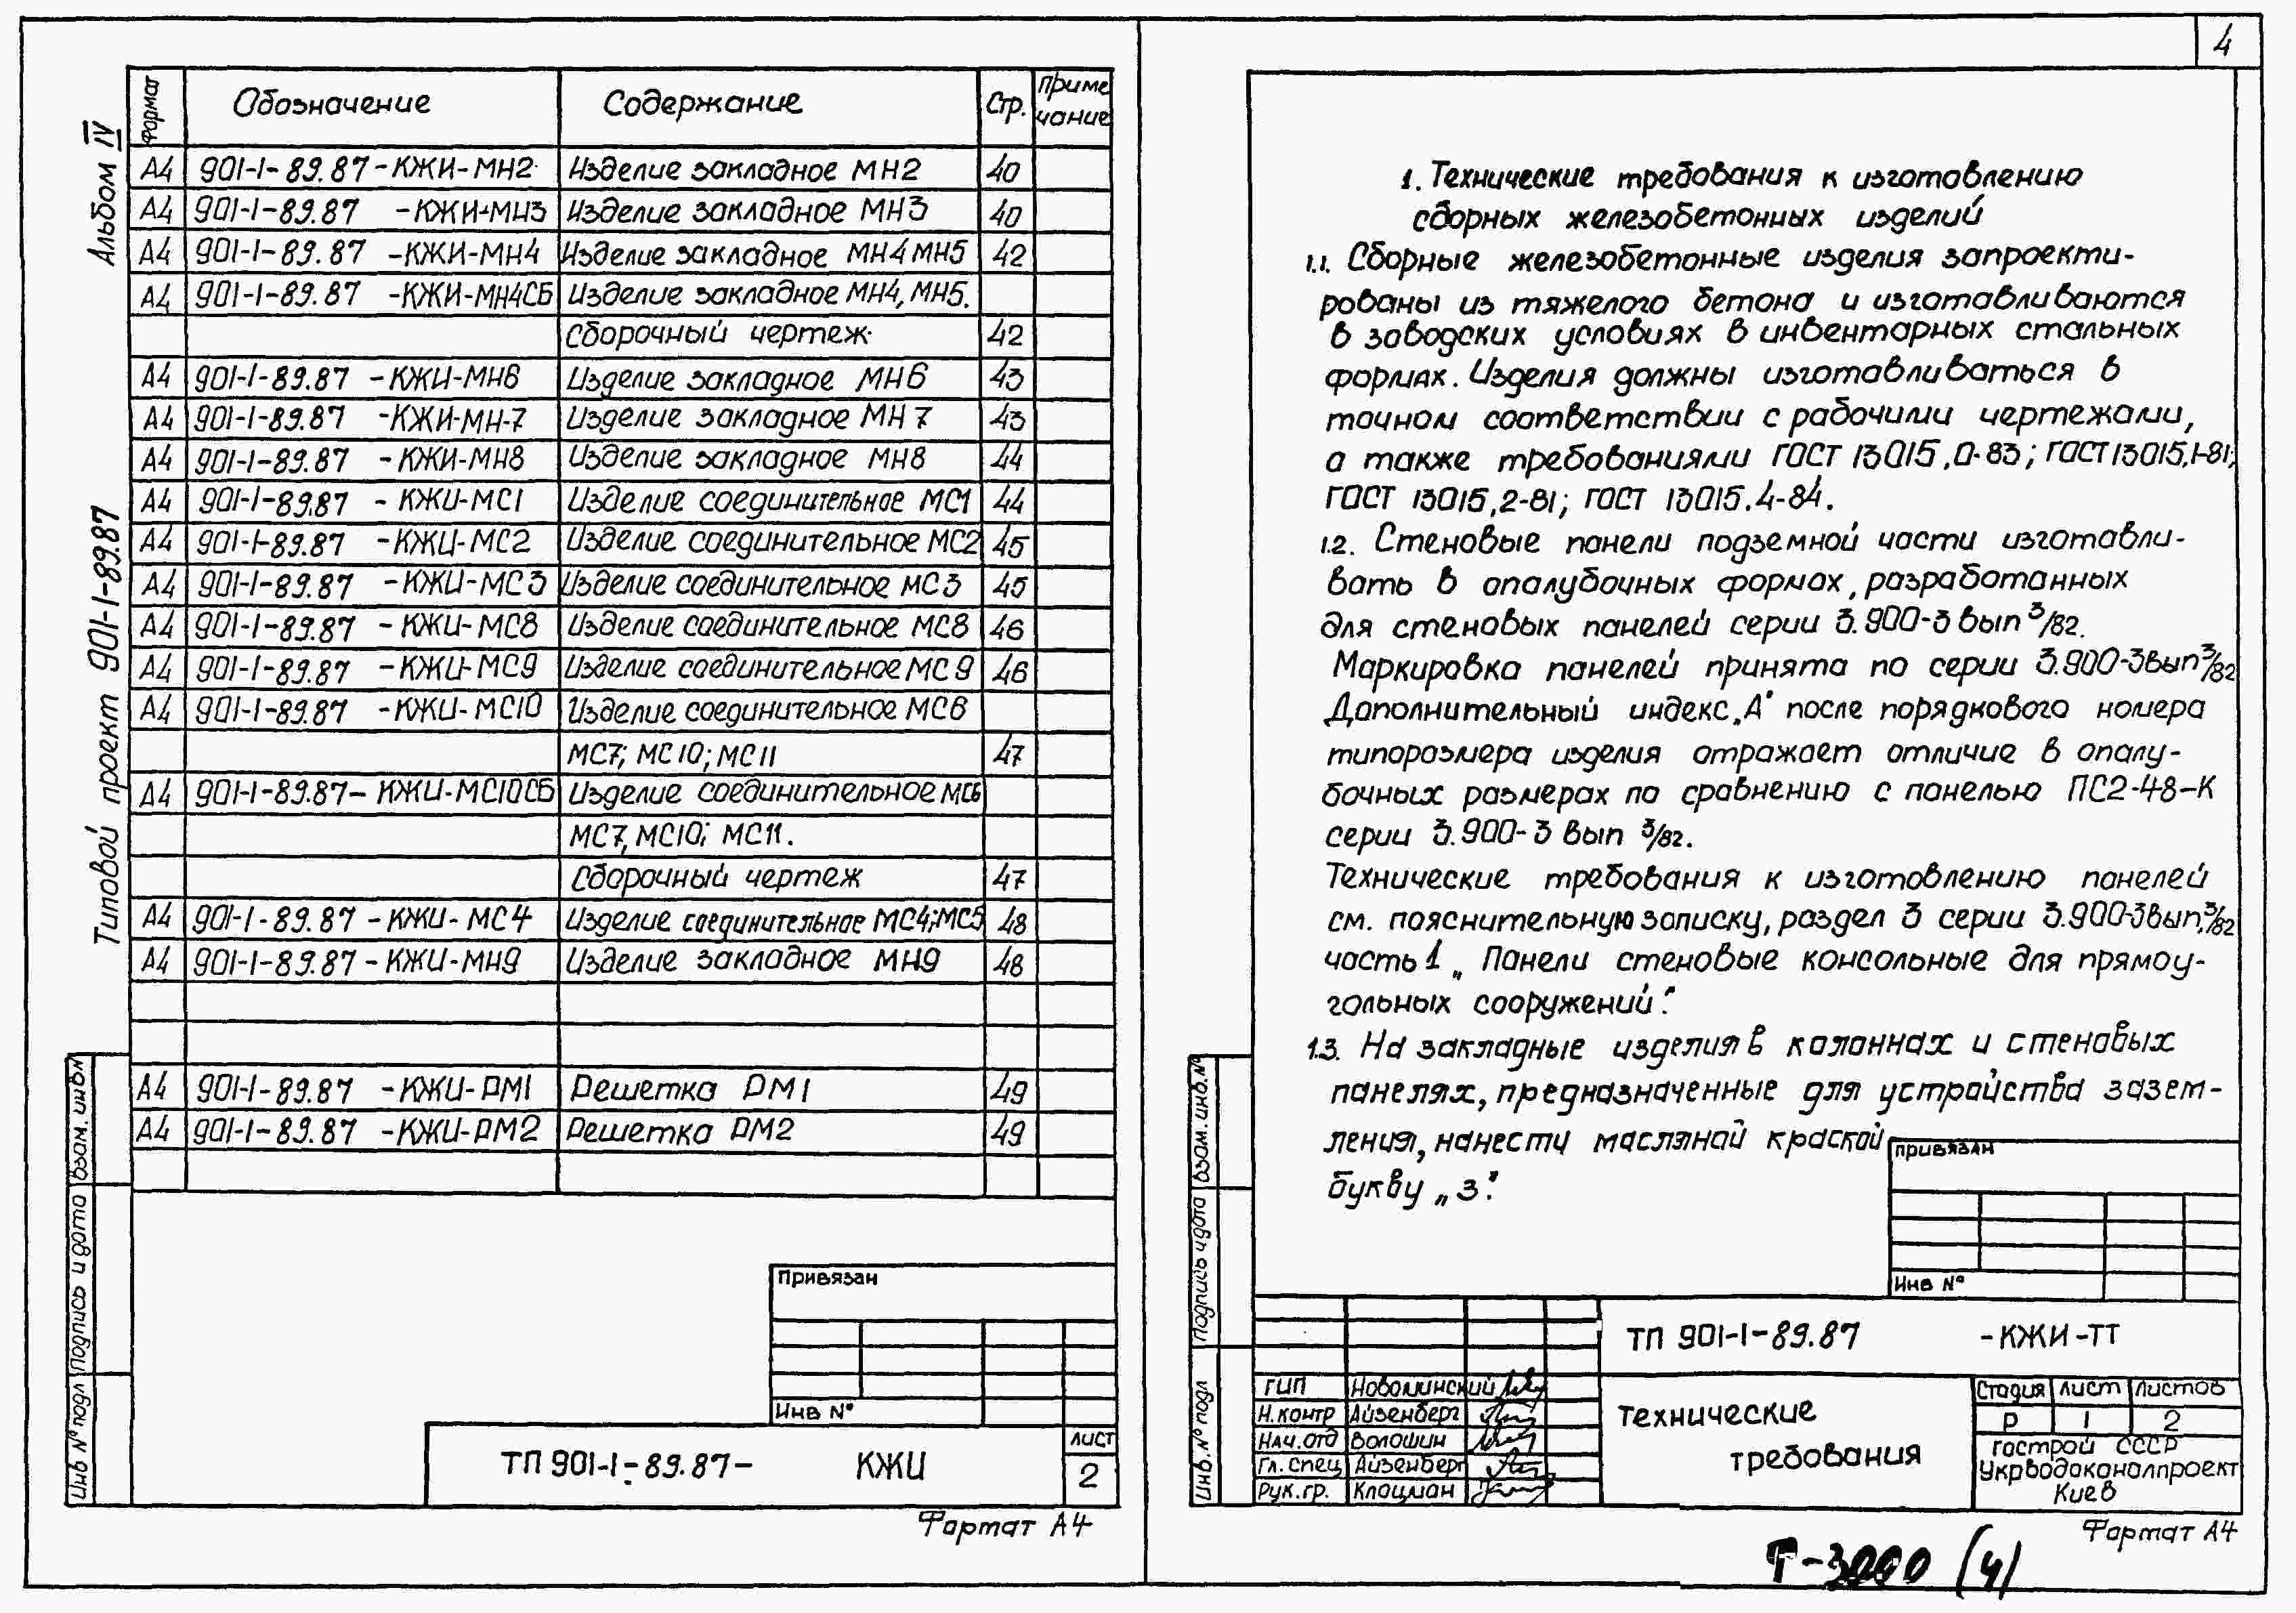 4
Альбом IV
Типовой проект 901-1-89.87
Формат Обозначение Содержание Стр. Приме чание
А4 901-1-89.87-КЖИ-МН2 Изделие закладное МН2 40
А4 901-1-89.87 -КЖИ-МН3 Изделие закладное МН3 40
А4 901-1-89.87 -КЖИ-МН4 Изделие закладное МН4 МН5 42
А4 901-1-89.87 -КЖИ-МН4СБ Изделие закладное МН4, МН5.
Сборочный чертеж 42
А4 901-1-89.87 -КЖИ-МН6 Изделие закладное МН6 43
А4 901-1-89.87 -КЖИ-МН-7 Изделие закладное МН7 43
А4 901-1-89.87 -КЖИ-МН8 Изделие закладное МН8 44
А4 901-1-89.87 -КЖИ-МС1 Изделие соединительное МС1 44
А4 901-1-89.87 -КЖИ-МС2 Изделие соединительное МС2 45
А4 901-1-89.87 -КЖИ-МС3 Изделие соединительное МС3 45
А4 901-1-89.87 -КЖИ-МС8 Изделие соединительное МС8 46
А4 901-1-89.87 -КЖИ-МС9 Изделие соединительное МС9 46
А4 901-1-89.87 -КЖИ-МС10 Изделие соединительное МС6
МС7; МС10; МС11 47
А4 901-1-89.87-КЖИ-МС10СБ Изделие соединительное МС6
МС7, МС10; МС11.
Сборочный чертеж 47
А4 901-1-89.87-КЖИ-МС4 Изделие соединительное МС4; МС5 48
А4 901-1-89.87-КЖИ-МН9 Изделие закладное МН9 48
А4 901-1-89.87 -КЖИ-РМ1 Решетка РМ1 49
А4 901-1-89.87 -КЖИ-РМ2 Решетка РМ2 49
Взам. инв.№
Подпись и дата
Инв № подл
Привязан
Инв №
ТП 901-1-89.87- КЖИ
лист
2
Формат А4
1. Технические требования к изготовлению
сборных железобетонных изделий
1.1. Сборные железобетонные изделия запроекти-
рованы из тяжелого бетона и изготавливаются
в заводских условиях в инвентарных стальных
формах. Изделия должны изготавливаться в
точном соответствии с рабочими чертежами,
а также требованиями ГОСТ 13015.0-83; ГОСТ 13015.1-81;
ГОСТ 13015.2-81; ГОСТ 13015.4-84.
1.2. Стеновые панели подземной части изготавли-
вать в опалубочных формах, разработанных
для стеновых панелей серии 3.900-3 вып 3/82.
Маркировка панелей принята по серии 3.900-3 вып 3/82
Дополнительный индекс „А" после порядкового номера
типоразмера изделия отражает отличие в опалу-
бочных размерах по сравнению с панелью ПС2-48-К
серии 3.900-3 вып 3/82.
Технические требования к изготовлению панелей
см. пояснительную записку, раздел 3 серии 3.900-3 вып. 3/82
часть 1 „Панели стеновые консольные для прямоу-
гольных сооружений".
1.3. На закладные изделия в колоннах и стеновых
панелях, предназначенные для устройства зазем-
ления, нанести масляной краской
букву „З".
Взам. инв.№
Подпись и дата
Инв.№ подл
привязан
Инв №
ТП 901-1-89.87 -КЖИ-ТТ
ГИП Новоминский
Н.контр Айзенберг
Нач.отд Волошин
Гл.спец Айзенберг
Рук.гр. Клоцман
технические
требования
Стадия лист листов
Р 1 2
госстрой СССР
Укрводоканалпроект
Киев
Формат А4
Т-3000 (4)